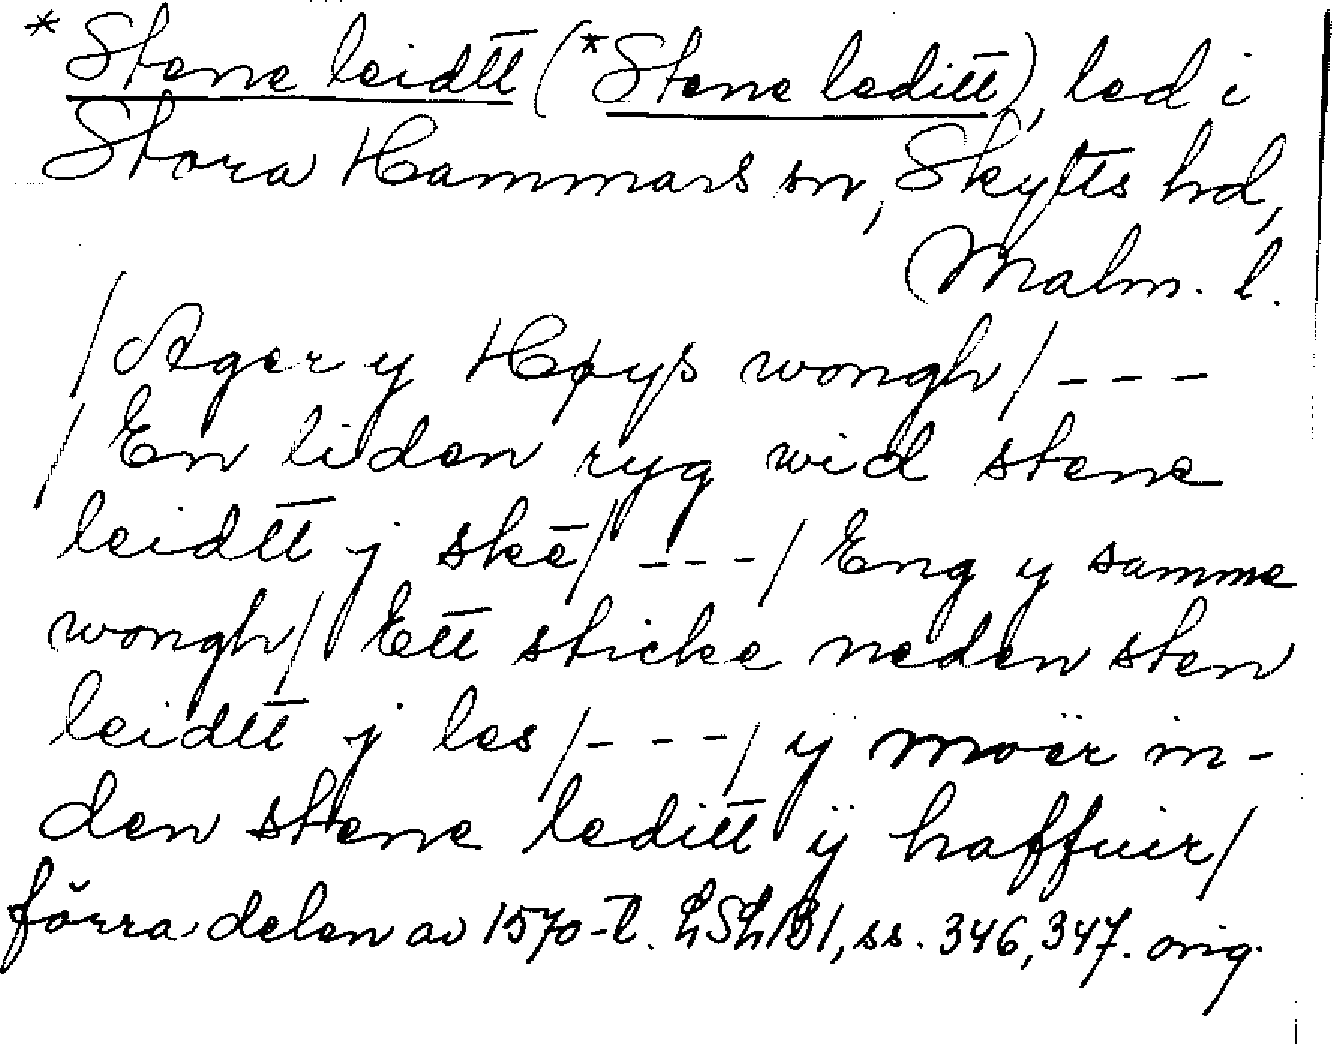 *Stene leidtt (*Stene leditt), led i
Stora Hammars sn, Skytts hd,
Malm. l.
/Ager y Høys wongh/---
/En liden ryg wid stene
leidtt j skē/---/Eng y samme
wongh/Ett sticke neden sten
leidtt j les/---/ÿ moër in-
den stene leditt ÿ haffuir/
förra delen av 1570-t. LSLB1, ss. 346, 347. orig.